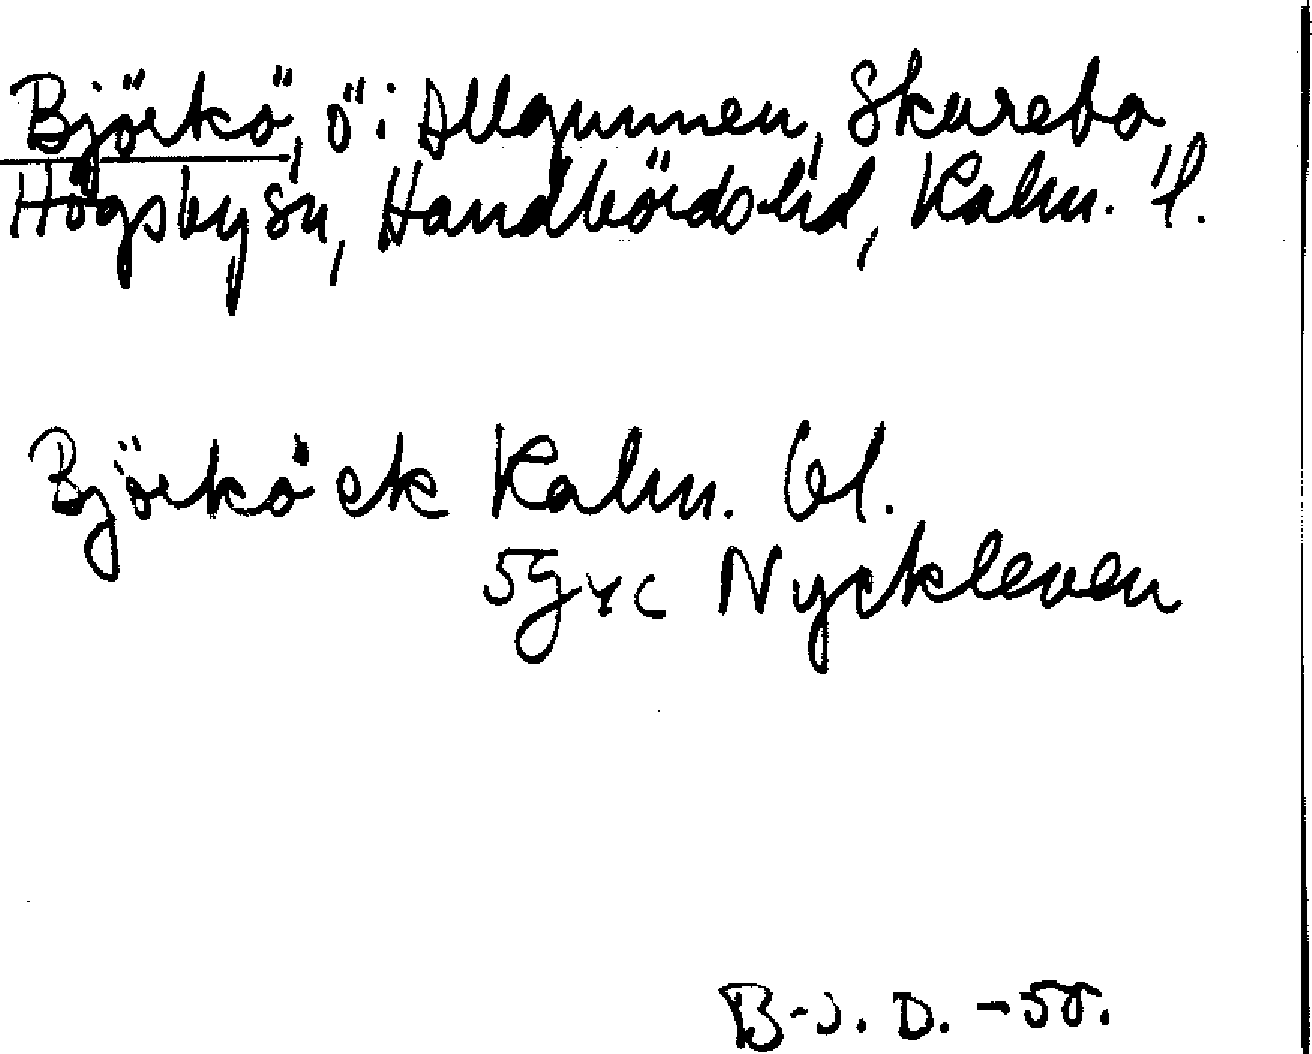 Björkö, ö i Allgunnen, Skurebo
Högsby sn, Handbörds hd, Kalm. l.
Björkö ek Kalm. l.
5G4c Nyckleven
B-J. D. -55.